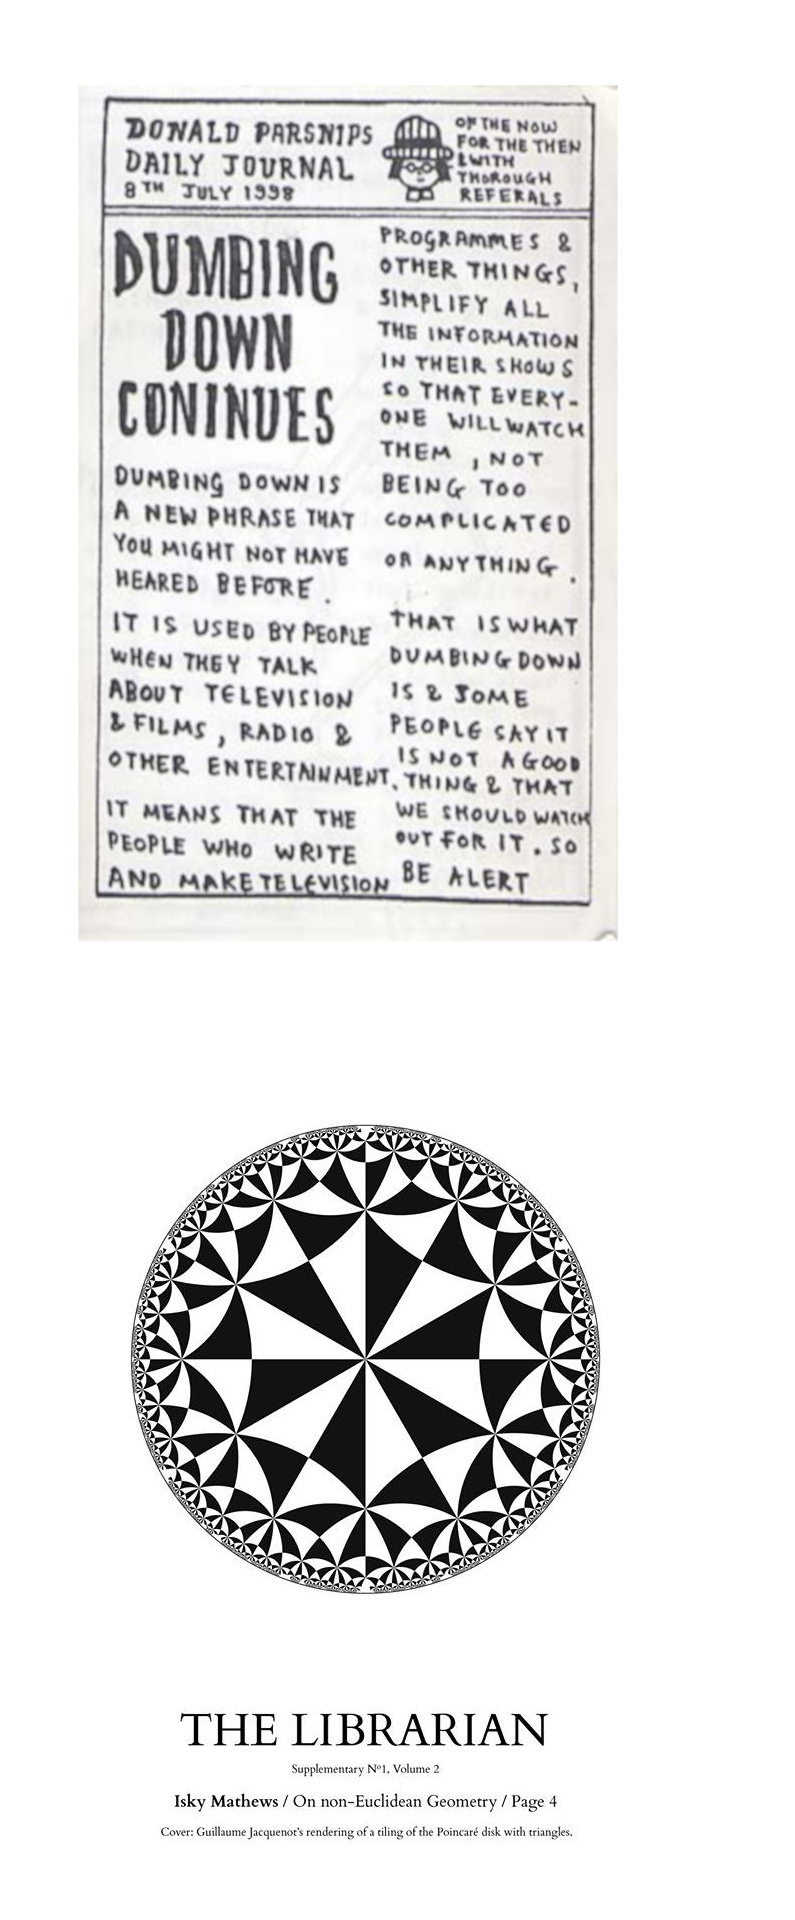 DONALD PARSNIPS
DAILY JOURNAL
8TH JULY 1998
OF THE NOW
FOR THE THEN
& WITH
THOROUGH
REFERALS
DUMBING
DOWN
CONINUES
DUMBING DOWN IS
A NEW PHRASE THAT
YOU MIGHT NOT HAVE
HEARED BEFORE.
IT IS USED BY PEOPLE
WHEN THEY TALK
ABOUT TELEVISION
& FILMS, RADIO &
OTHER ENTERTAINMENT.
IT MEANS THAT THE
PEOPLE WHO WRITE
AND MAKE TELEVISION
PROGRAMMES &
OTHER THINGS,
SIMPLIFY ALL
THE INFORMATION
IN THEIR SHOWS
SO THAT EVERY-
ONE WILL WATCH
THEM, NOT
BEING TOO
COMPLICATED
OR ANYTHING.
THAT IS WHAT
DUMBING DOWN
IS & SOME
PEOPLE SAY IT
IS NOT A GOOD
THING & THAT
WE SHOULD WATCH
OUT FOR IT. SO
BE ALERT
THE LIBRARIAN
Supplementary Nº1, Volume 2
Isky Mathews / On non-Euclidean Geometry / Page 4
Cover: Guillaume Jacquenot's rendering of a tiling of the Poincaré disk with triangles.